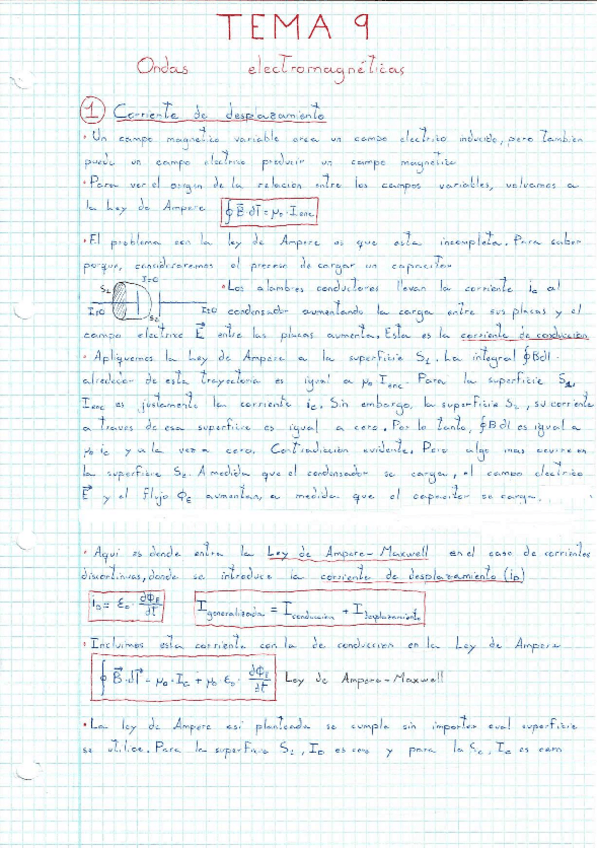 TEMA 9
Ondas electromagnéticas
1 Corriente de desplazamiento
• Un campo magnetico variable crea un campo electrico inducido, pero tambien
puede un campo electrico producir un campo magnetico
• Para ver el origen de la relacion entre los campos variables, volvamos a
la Ley de Ampere ∮B⃗·dl⃗ = μ₀·I enc
• El problema con la ley de Ampere es que esta incompleta. Para saber
porque, consideraremos el proceso de cargar un capacitor
I=0
• Los alambres conductores llevan la corriente ic al
condensador aumentando la carga entre sus placas y el
campo electrico E⃗ entre las placas aumenta. Esta es la corriente de conduccion
• Apliquemos la Ley de Ampere a la superficie S. La integral ∮Bdl
alrededor de esta trayectoria es igual a μ₀ Ienc. Para la superficie S
Ienc es justamente la corriente ic. Sin embargo, la superficie S₂, su corriente
a traves de esa superficie es igual a cero. Por lo tanto, ∮B dl es igual a
μ₀ ic y a la vez a cero. Contradiccion evidente. Pero algo mas ocurre en
la superficie S₂. A medida que el condensador se carga, el campo electrico
E⃗ y el flujo ΦE aumentan, a medida que el capacitor se carga.
• Aqui es donde entra la Ley de Ampere-Maxwell en el caso de corrientes
discontinuas, donde se introduce la corriente de desplazamiento (iD)
iD = ε₀·dΦE/dt I generalizada = I conduccion + I desplazamiento
• Incluimos esta corriente con la de conduccion en la Ley de Ampere
∮B⃗·dl⃗ = μ₀·Ic + μ₀·ε₀·dΦE/dt Ley de Ampere-Maxwell
• La ley de Ampere asi planteada se cumple sin importar cual superficie
se utilice. Para la superficie S, ID es cero y para la S, Ic es cero